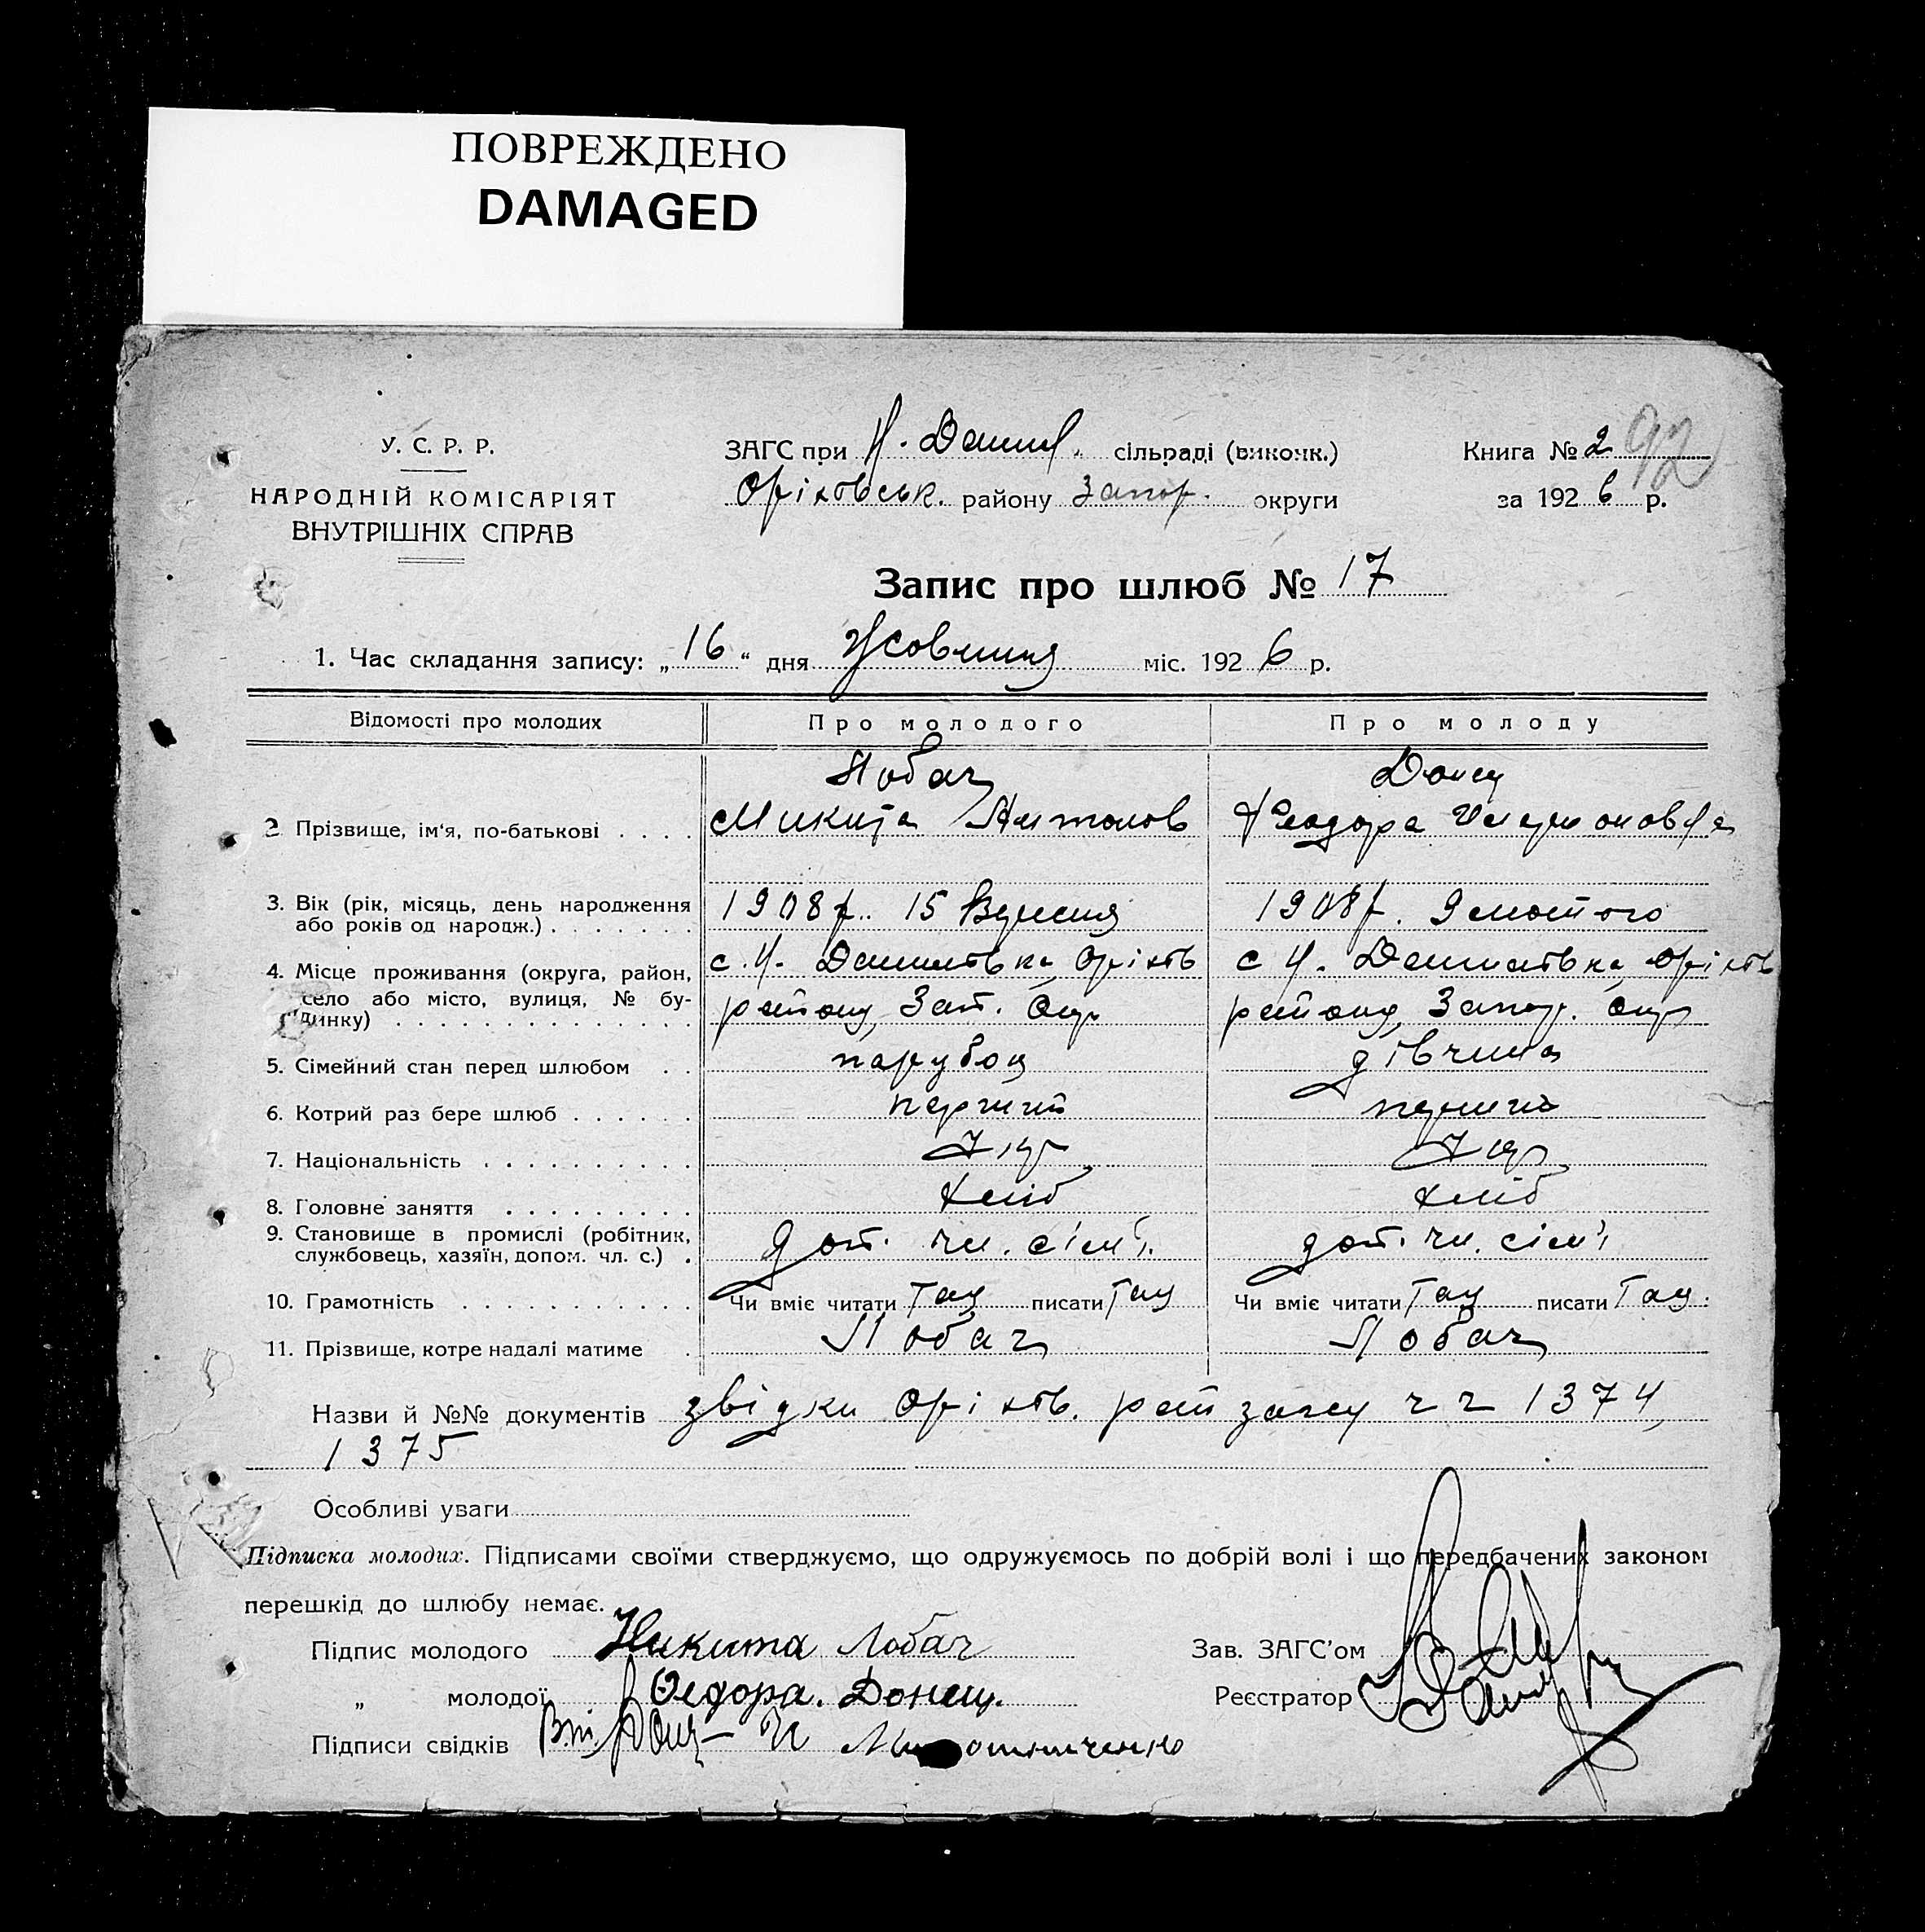 ПОВРЕЖДЕНО
DAMAGED
У. С. Р. Р.
НАРОДНІЙ КОМІСАРІЯТ
ВНУТРІШНІХ СПРАВ
ЗАГС при Н. Данил. сільраді (виконк.)
Оріховськ. району Запор. округи
Книга № 2 92
за 1926 р.
Запис про шлюб № 17
1. Час складання запису: „16“ дня Жовтня міс. 1926 р.
Відомості про молодих Про молодого Про молоду
Лобач Донец
2 Прізвище, ім'я, по-батькові . . . . Микита Антонов Феодора
3. Вік (рік, місяць, день народження
або років од народж.) . . . . . . . 1908 р. 15 Вересня 1908 р. 9 лютого
4. Місце проживання (округа, район,
село або місто, вулиця, № бу-
динку) . . . . . . . . . . . . . .
с. Н. Данилівка Оріхів с Н. Данилівка Оріхів
району Зап. Окр району Запор. Окр
5. Сімейний стан перед шлюбом . . парубок дівчина
6. Котрий раз бере шлюб . . . . . . перший перший
7. Національність . . . . . . . . . . Укр Укр
8. Головне заняття . . . . . . . . . хліб хліб
9. Становище в промислі (робітник,
службовець, хазяїн, допом. чл. с.) . доп. чл. сім'ї. доп. чл. сім'ї
10. Грамотність . . . . . . . . . . . Чи вміє читати так писати так Чи вміє читати так писати так.
11. Прізвище, котре надалі матиме . Лобач Лобач
Назви й №№ документів звідки Оріхів. рай загсу ч ч 1374,
1375
Особливі уваги
Підписка молодих. Підписами своїми стверджуємо, що одружуємось по добрій волі і що передбачених законом
перешкід до шлюбу немає.
Підпис молодого Никита Лобач
„ молодої Федора. Донец.
Підписи свідків
Зав. ЗАГС'ом
Реєстратор